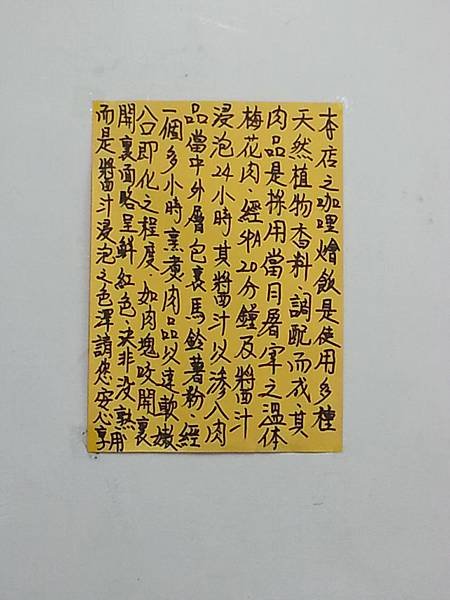 本店之咖哩燴飯是使用多種
天然植物香料、調配而成、其
肉品是採用當日屠宰之溫体
梅花肉、經SPA20分鐘及醬汁
浸泡24小時其醬汁以滲入肉
品當中外層包裹馬鈴薯粉、經
一個多小時烹煮肉品以達軟嫩
入口即化之程度、如肉塊咬開裏
開裏面略呈鮮紅色、決非沒熟
而是醬汁浸泡之色澤請您安心享用